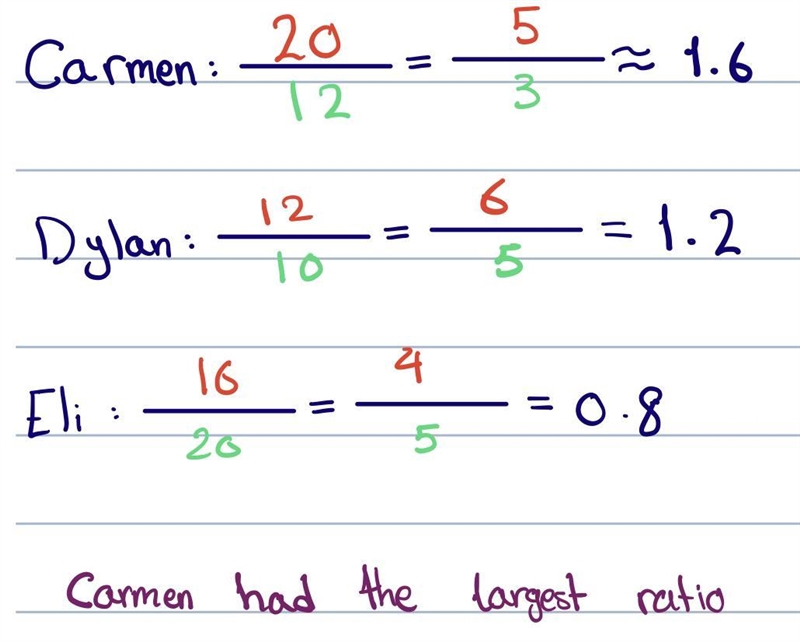 Carmen: 20/12 = 5/3 ≈ 1.6
Dylan: 12/10 = 6/5 = 1.2
Eli: 16/20 = 4/5 = 0.8
Carmen had the largest ratio